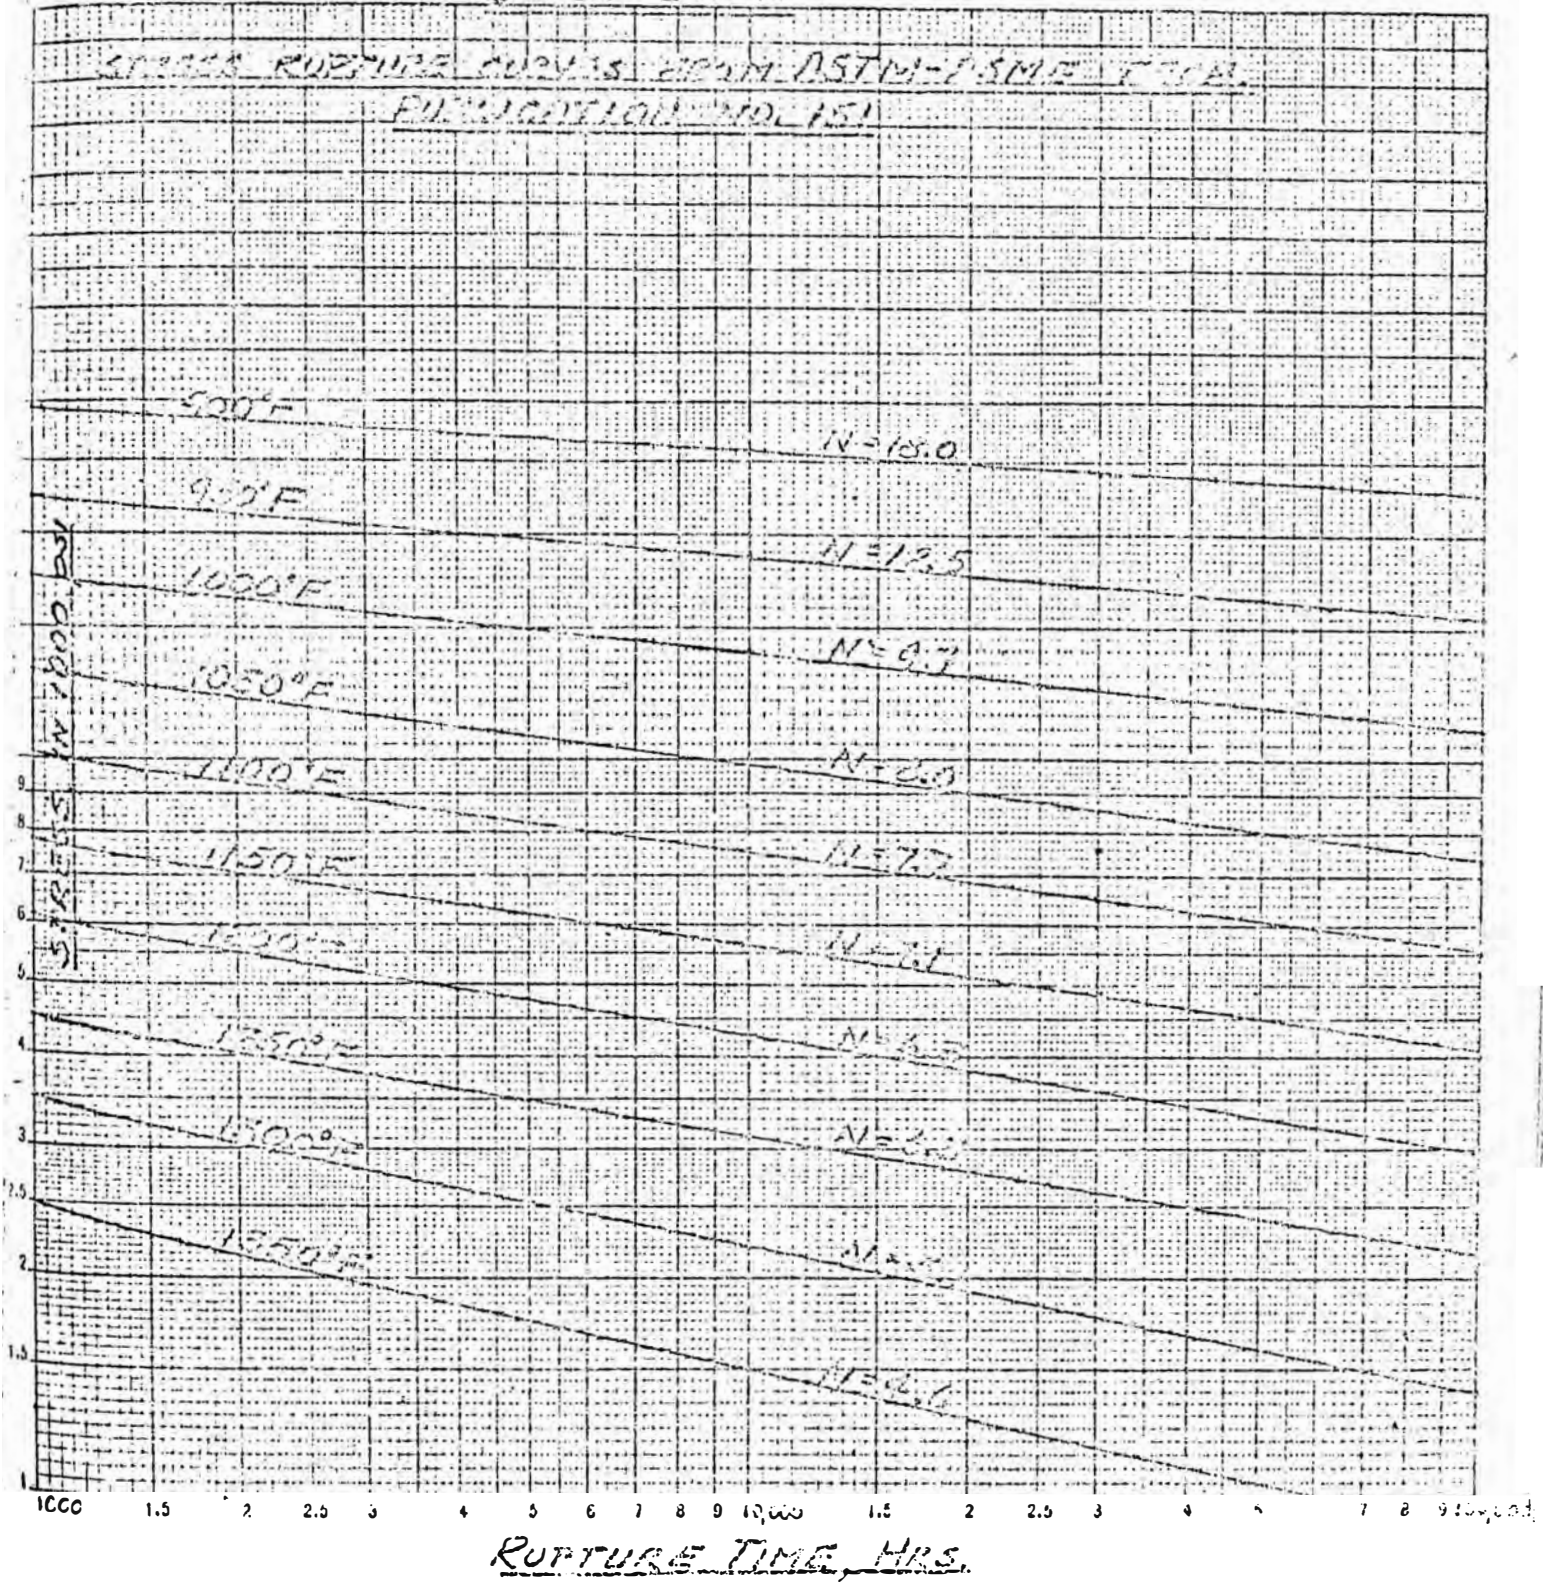 STRESS RUPTURE CURVES FROM ASTM-ASME TECH.
PUBLICATION NO. 151
500°F
N=18.0
1000°F
1050°F
1100°F
N=7.7
1150°F
N=7.1
1200°F
1250°F
1300°F
1350°F
STRESS IN 1000 PSI
9
8
7
6
5
4
3
2.5
2
1.5
1
1000 1.5 2 2.5 3 4 5 6 7 8 9 10,000 1.5 2 2.5 3 4 5 7 8 9 100,000
RUPTURE TIME, HRS.